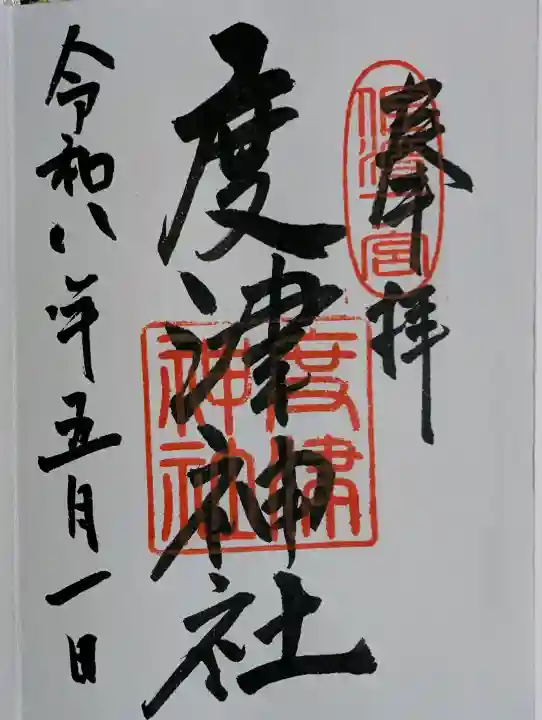 奉拝
佐渡一宮
度津神社
度津
神社
令和八年五月一日